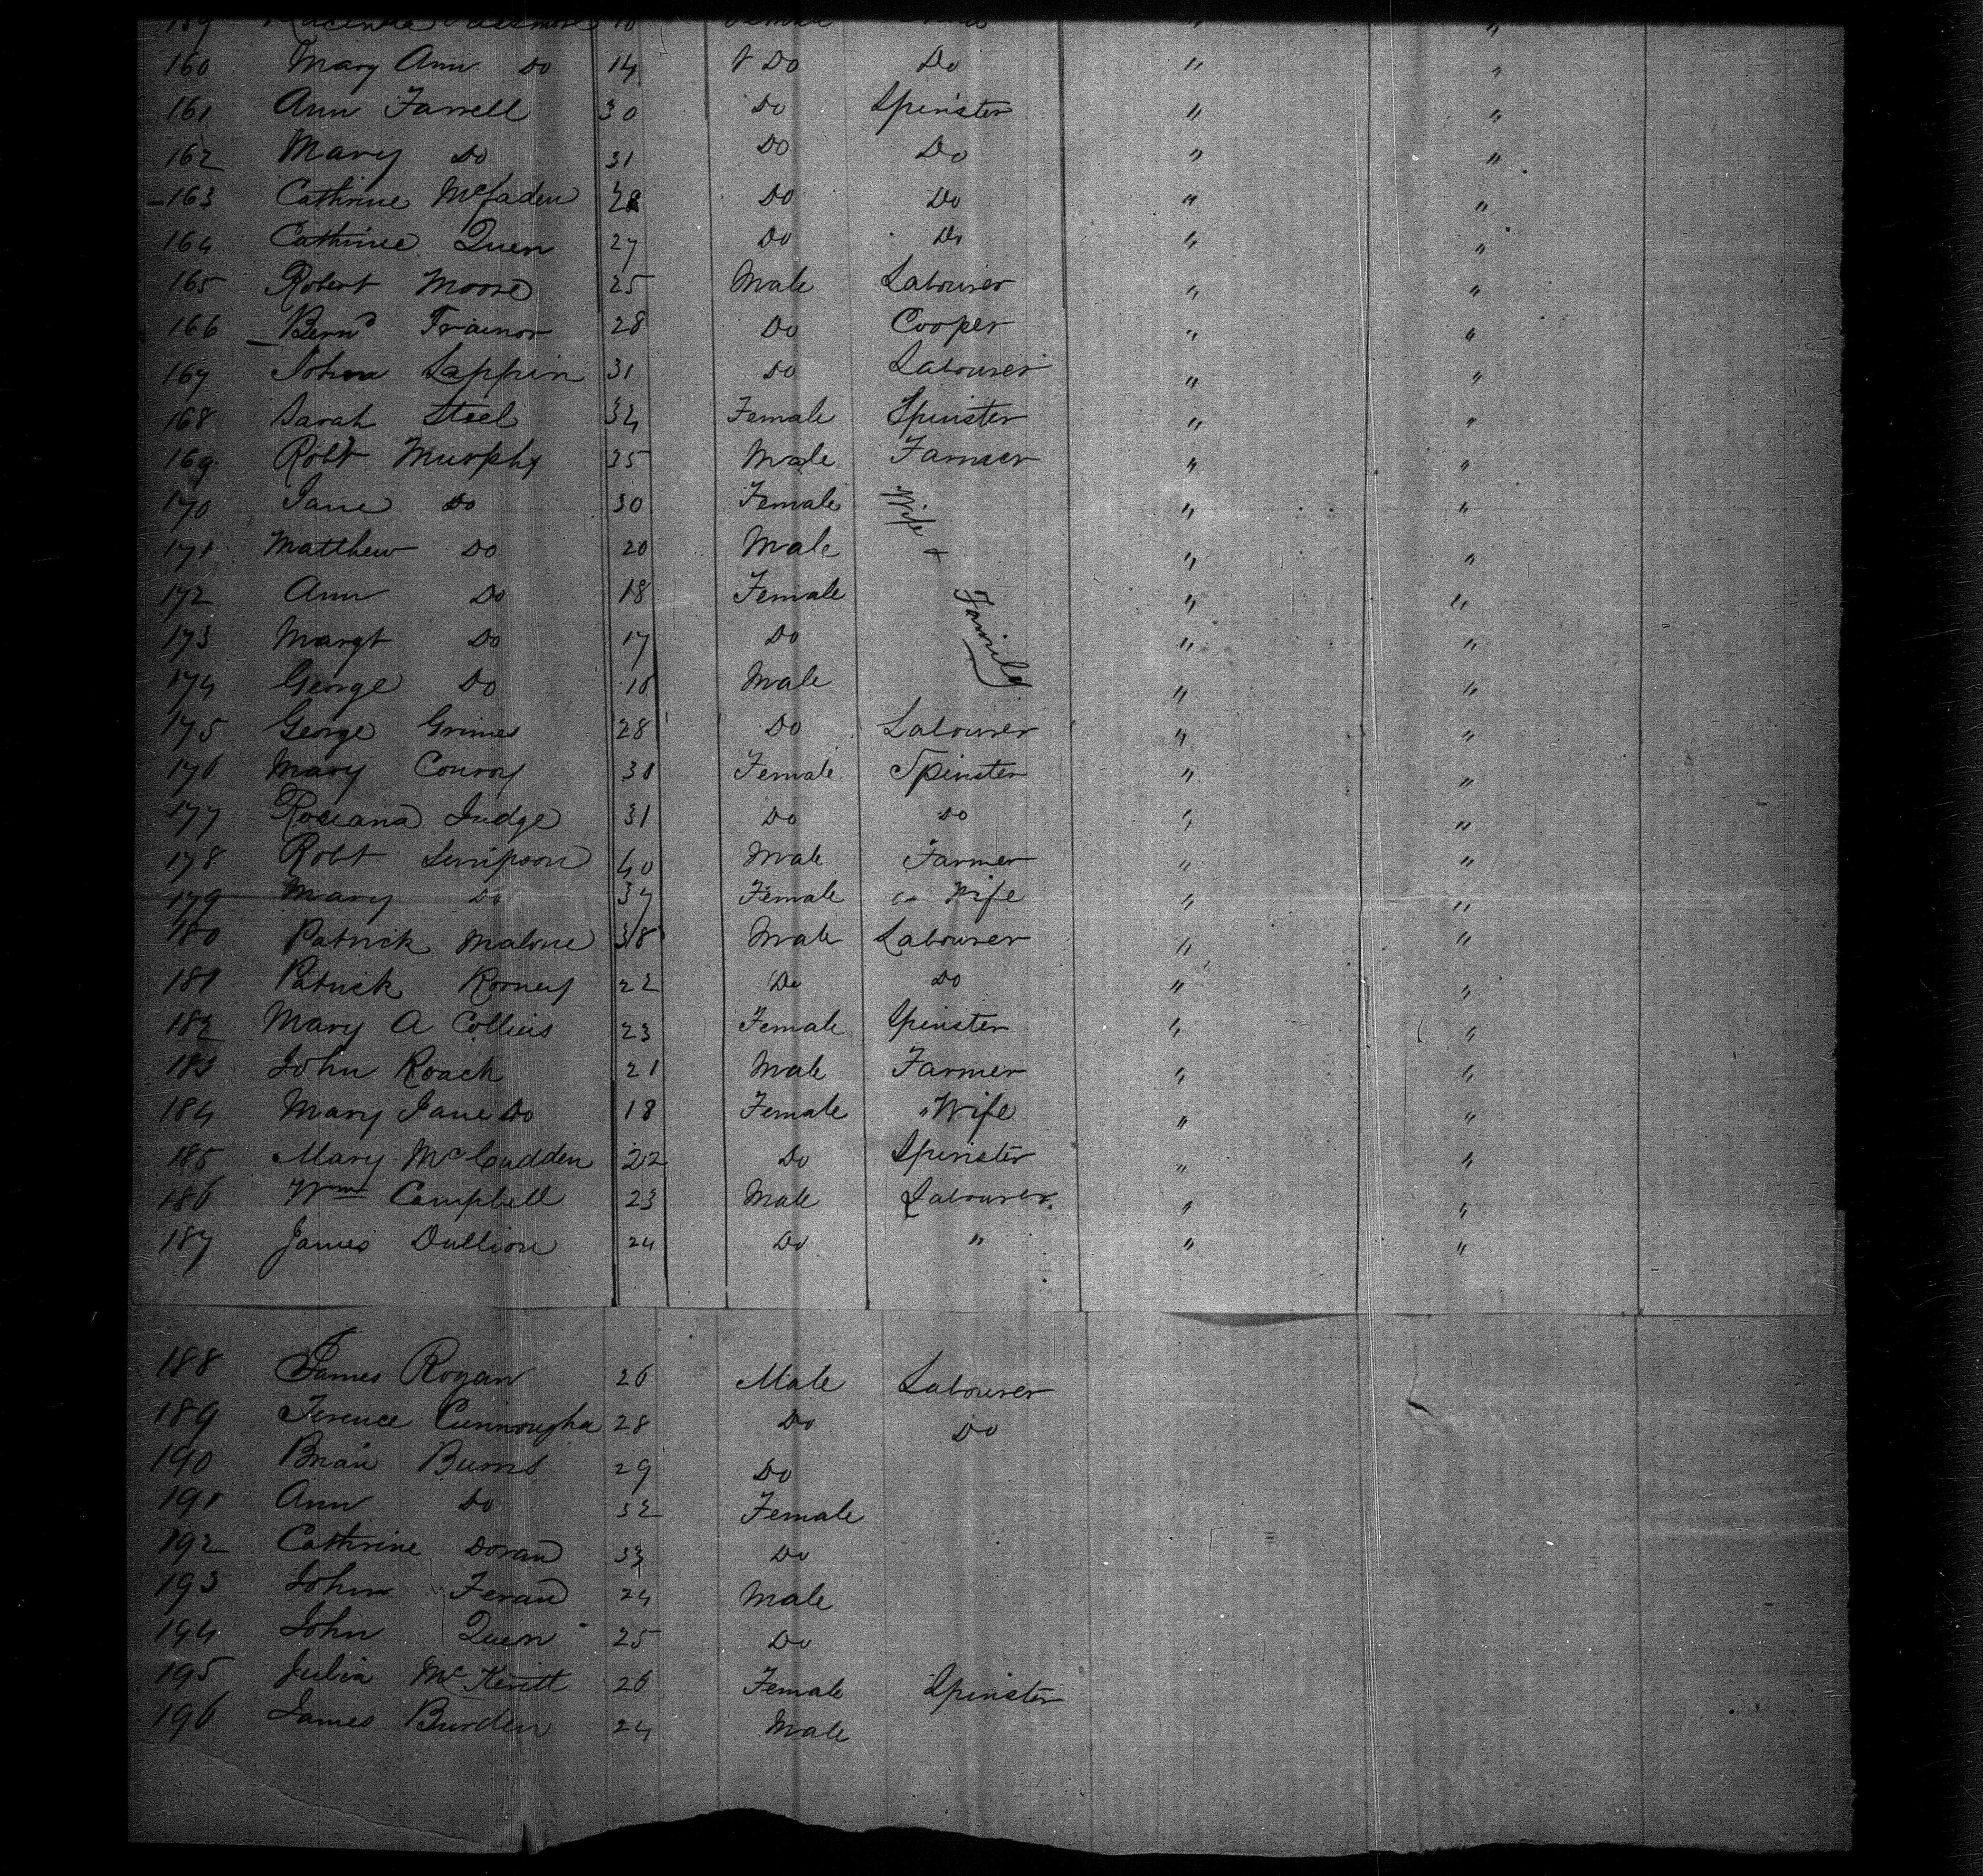 159 10 Female
160 Mary Ann Do 14 Do Do " "
161 Ann Farrell 30 Do Spinster " "
162 Mary Do 31 Do Do " "
163 Cathrine McFaden 28 Do Do " "
164 Cathrine Quen 27 Do Do " "
165 Robert Moore 25 Male Labourer " "
166 Bernd Trainor 28 Do Cooper " "
167 John Lappin 31 Do Labourer " "
168 Sarah Steel 34 Female Spinster " "
169 Robt Murphy 35 Male Farmer " "
170 Jane Do 30 Female Wife " "
171 Matthew Do 20 Male + " "
172 Ann Do 18 Female Family " "
173 Margt Do 17 Do " "
174 George Do 16 Male " "
175 George Grimes 28 Do Labourer " "
176 Mary Conroy 30 Female Spinster " "
177 Roseana Judge 31 Do Do " "
178 Robt Simpson 40 Male Farmer " "
179 Mary Do 37 Female " Wife " "
180 Patrick Malone 38 Male Labourer " "
181 Patrick Rooney 22 Do Do " "
182 Mary A Collins 23 Female Spinster " "
183 John Roach 21 Male Farmer " "
184 Mary Jane Do 18 Female " Wife " "
185 Mary McCudden 22 Do Spinster " "
186 Wm Campbell 23 Male Labourer " "
187 James Dullion 24 Do " " "
188 James Rogan 26 Male Labourer
189 Terence Cunnougha 28 Do Do
190 Brian Burns 29 Do
191 Ann Do 32 Female
192 Cathrine Doran 33 Do
193 John Feran 24 Male
194 John Quen 25 Do
195 Julia McKevitt 26 Female Spinster
196 James Burden 24 Male